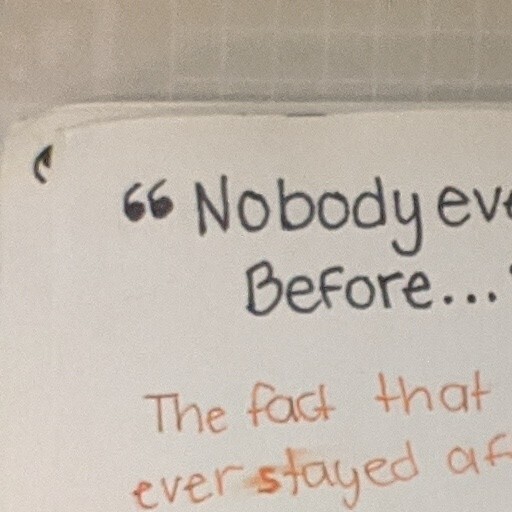 “Nobody eve
Before..."
The fact that
ever stayed af